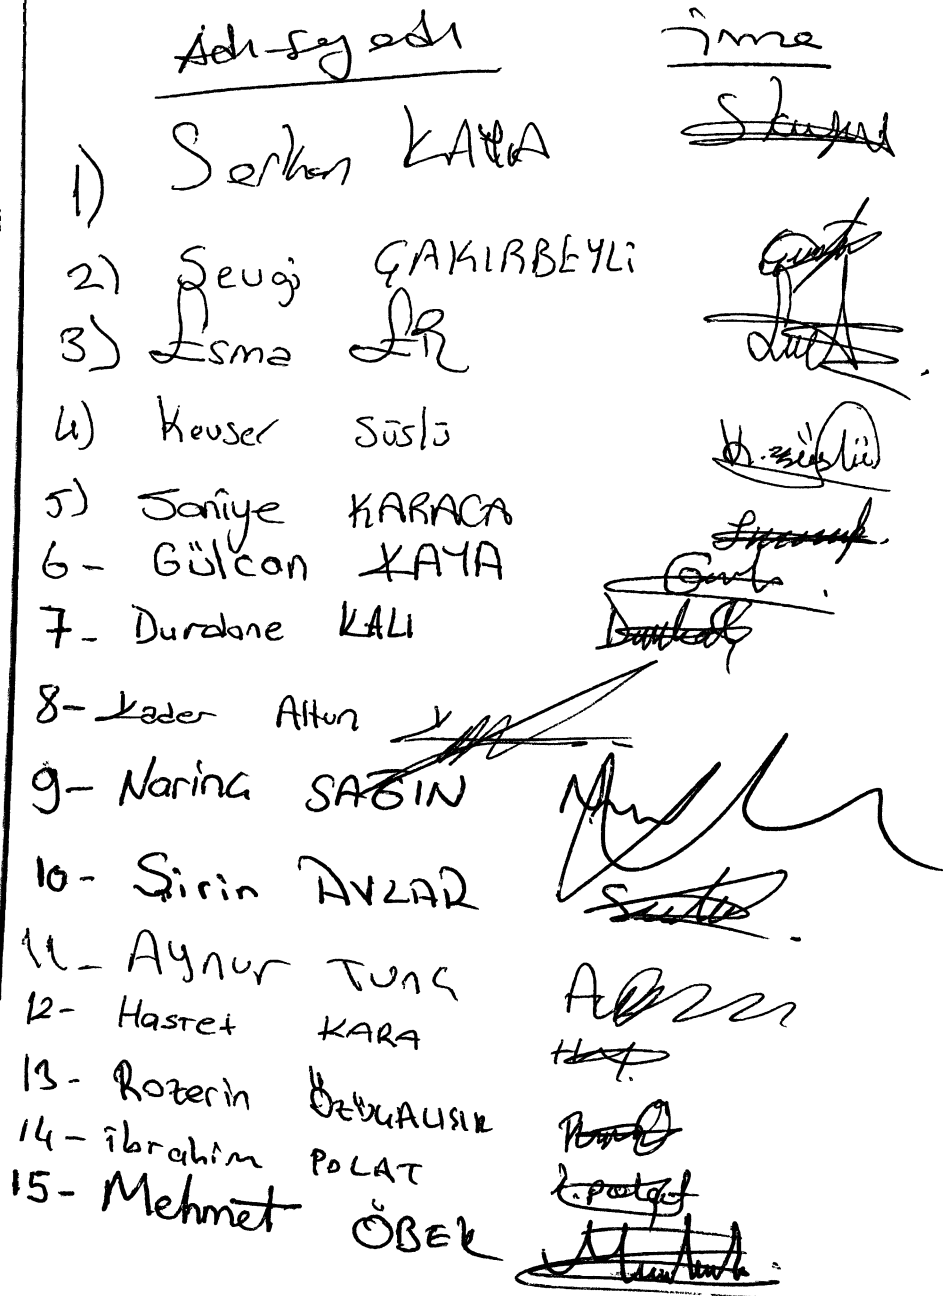 Adı-Soyadı İmza
1) Serkan KAYA
2) Sevgi ÇAKIRBEYLİ
3) Esma ER
4) Kevser Süslü K.Süslü
5) Saniye KARACA
6- Gülcan KAYA
7- Durdane KALI
8- Kader Altun
9- Narina SAĞIN
10- Şirin AVLAR
11- Aynur TUNÇ
12- Hasret KARA
13- Rozerin
14- İbrahim POLAT İ.polat
15- Mehmet ÖBEK